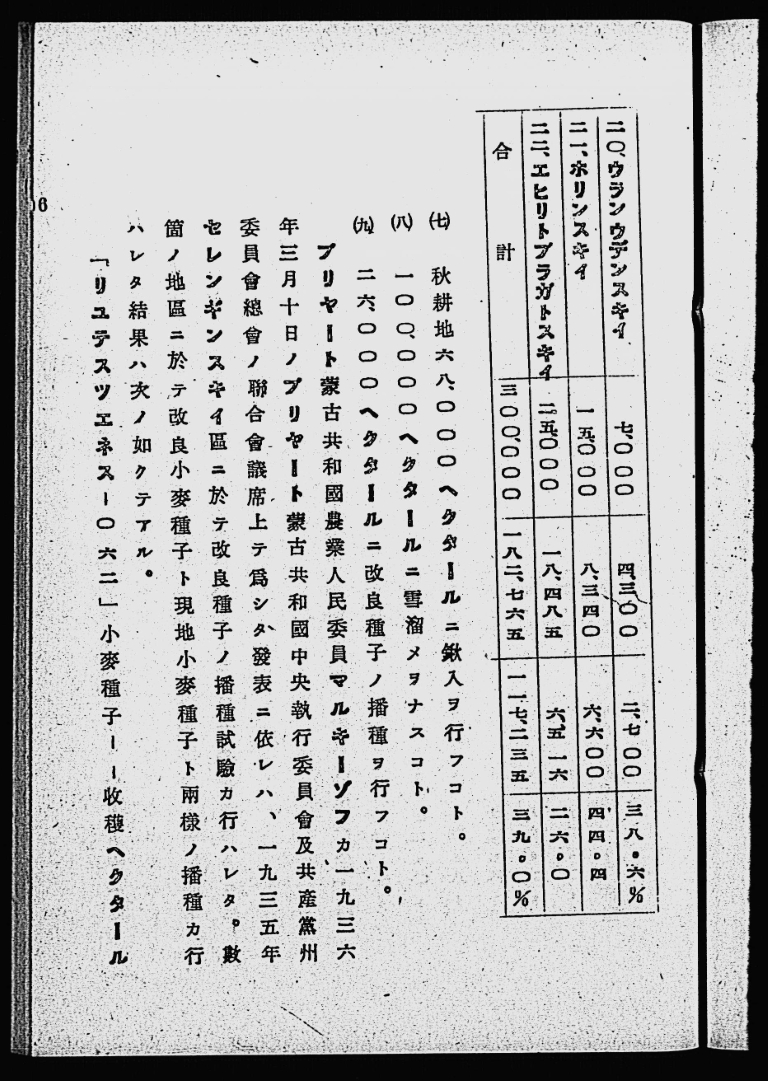 二〇、ウランウデンスキイ 七、〇〇〇 四、三〇〇 二、七〇〇 三八。六%
二一、ホリンスキイ 一五、〇〇〇 八、三四〇 六、六〇〇 四四。四
二二、エヒリトブラガトスキイ 二五、〇〇〇 一八、四八五 六、五一六 二六。〇
合計 三〇〇、〇〇〇 一八二、七六五 一一七、二三五 三九。〇%
㈦ 秋耕地六八、〇〇〇ヘクタールニ鍬入ヲ行フコト。
㈧ 一〇〇、〇〇〇ヘクタールニ雪溜メヲナスコト。
㈨ 二六、〇〇〇ヘクタールニ改良種子ノ播種ヲ行フコト。
ブリヤート蒙古共和國農業人民委員マルキーゾフカ一九三六
年三月十日ノブリヤート蒙古共和國中央執行委員會及共產黨州
委員會總會ノ聯合會議席上テ爲シタ發表ニ依レハ、一九三五年
セレンギンスキイ區ニ於テ改良種子ノ播種試驗カ行ハレタ。數
箇ノ地區ニ於テ改良小麥種子ト現地小麥種子ト兩樣ノ播種カ行
ハレタ結果ハ次ノ如クテアル。
「リュテスツエネスー〇六二」小麥種子ーー收穫ヘクタール
6